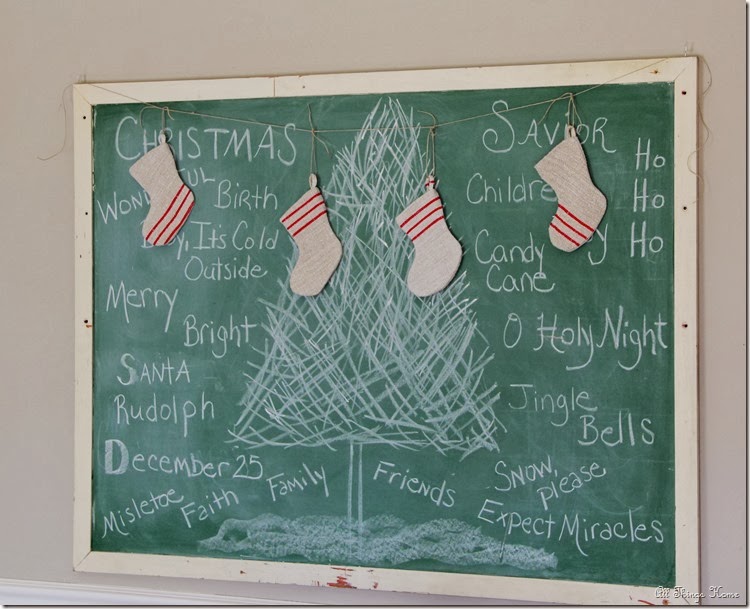 CHRISTMAS
Wonderful Birth
Baby, It's Cold
Outside
Merry
Bright
SANTA
Rudolph
December 25
Misletoe
Faith
Family
Friends
SAVIOR
Ho
Ho
Ho
Children
Candy
Cane
O Holy Night
Jingle
Bells
Snow,
please
Expect Miracles
All Things Home